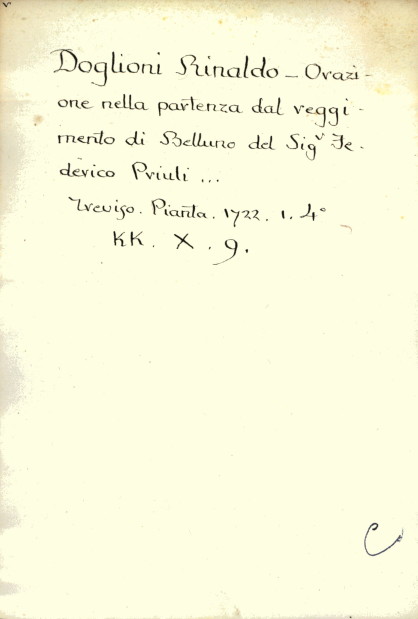 Doglioni Rinaldo - Orazi-
one nella partenza dal reggi-
mento di Belluno del Sigr Fe-
derico Priuli ...
Treviso. Pianta. 1722. 1. 4°
KK. X. 9.